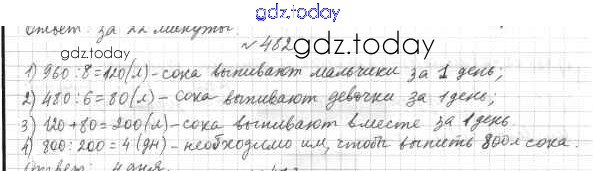 gdz.today
Ответ: за 22 минуты.
№ 482
gdz.today
1) 960 : 8 = 120 (л) – сока выпивают мальчики за 1 день;
2) 480 : 6 = 80 (л) – сока выпивают девочки за 1 день;
3) 120 + 80 = 200 (л) – сока выпивают вместе за 1 день.
4) 800 : 200 = 4 (дн) – необходимо им, чтобы выпить 800 л сока.
Ответ: 4 дня.
gdz.today